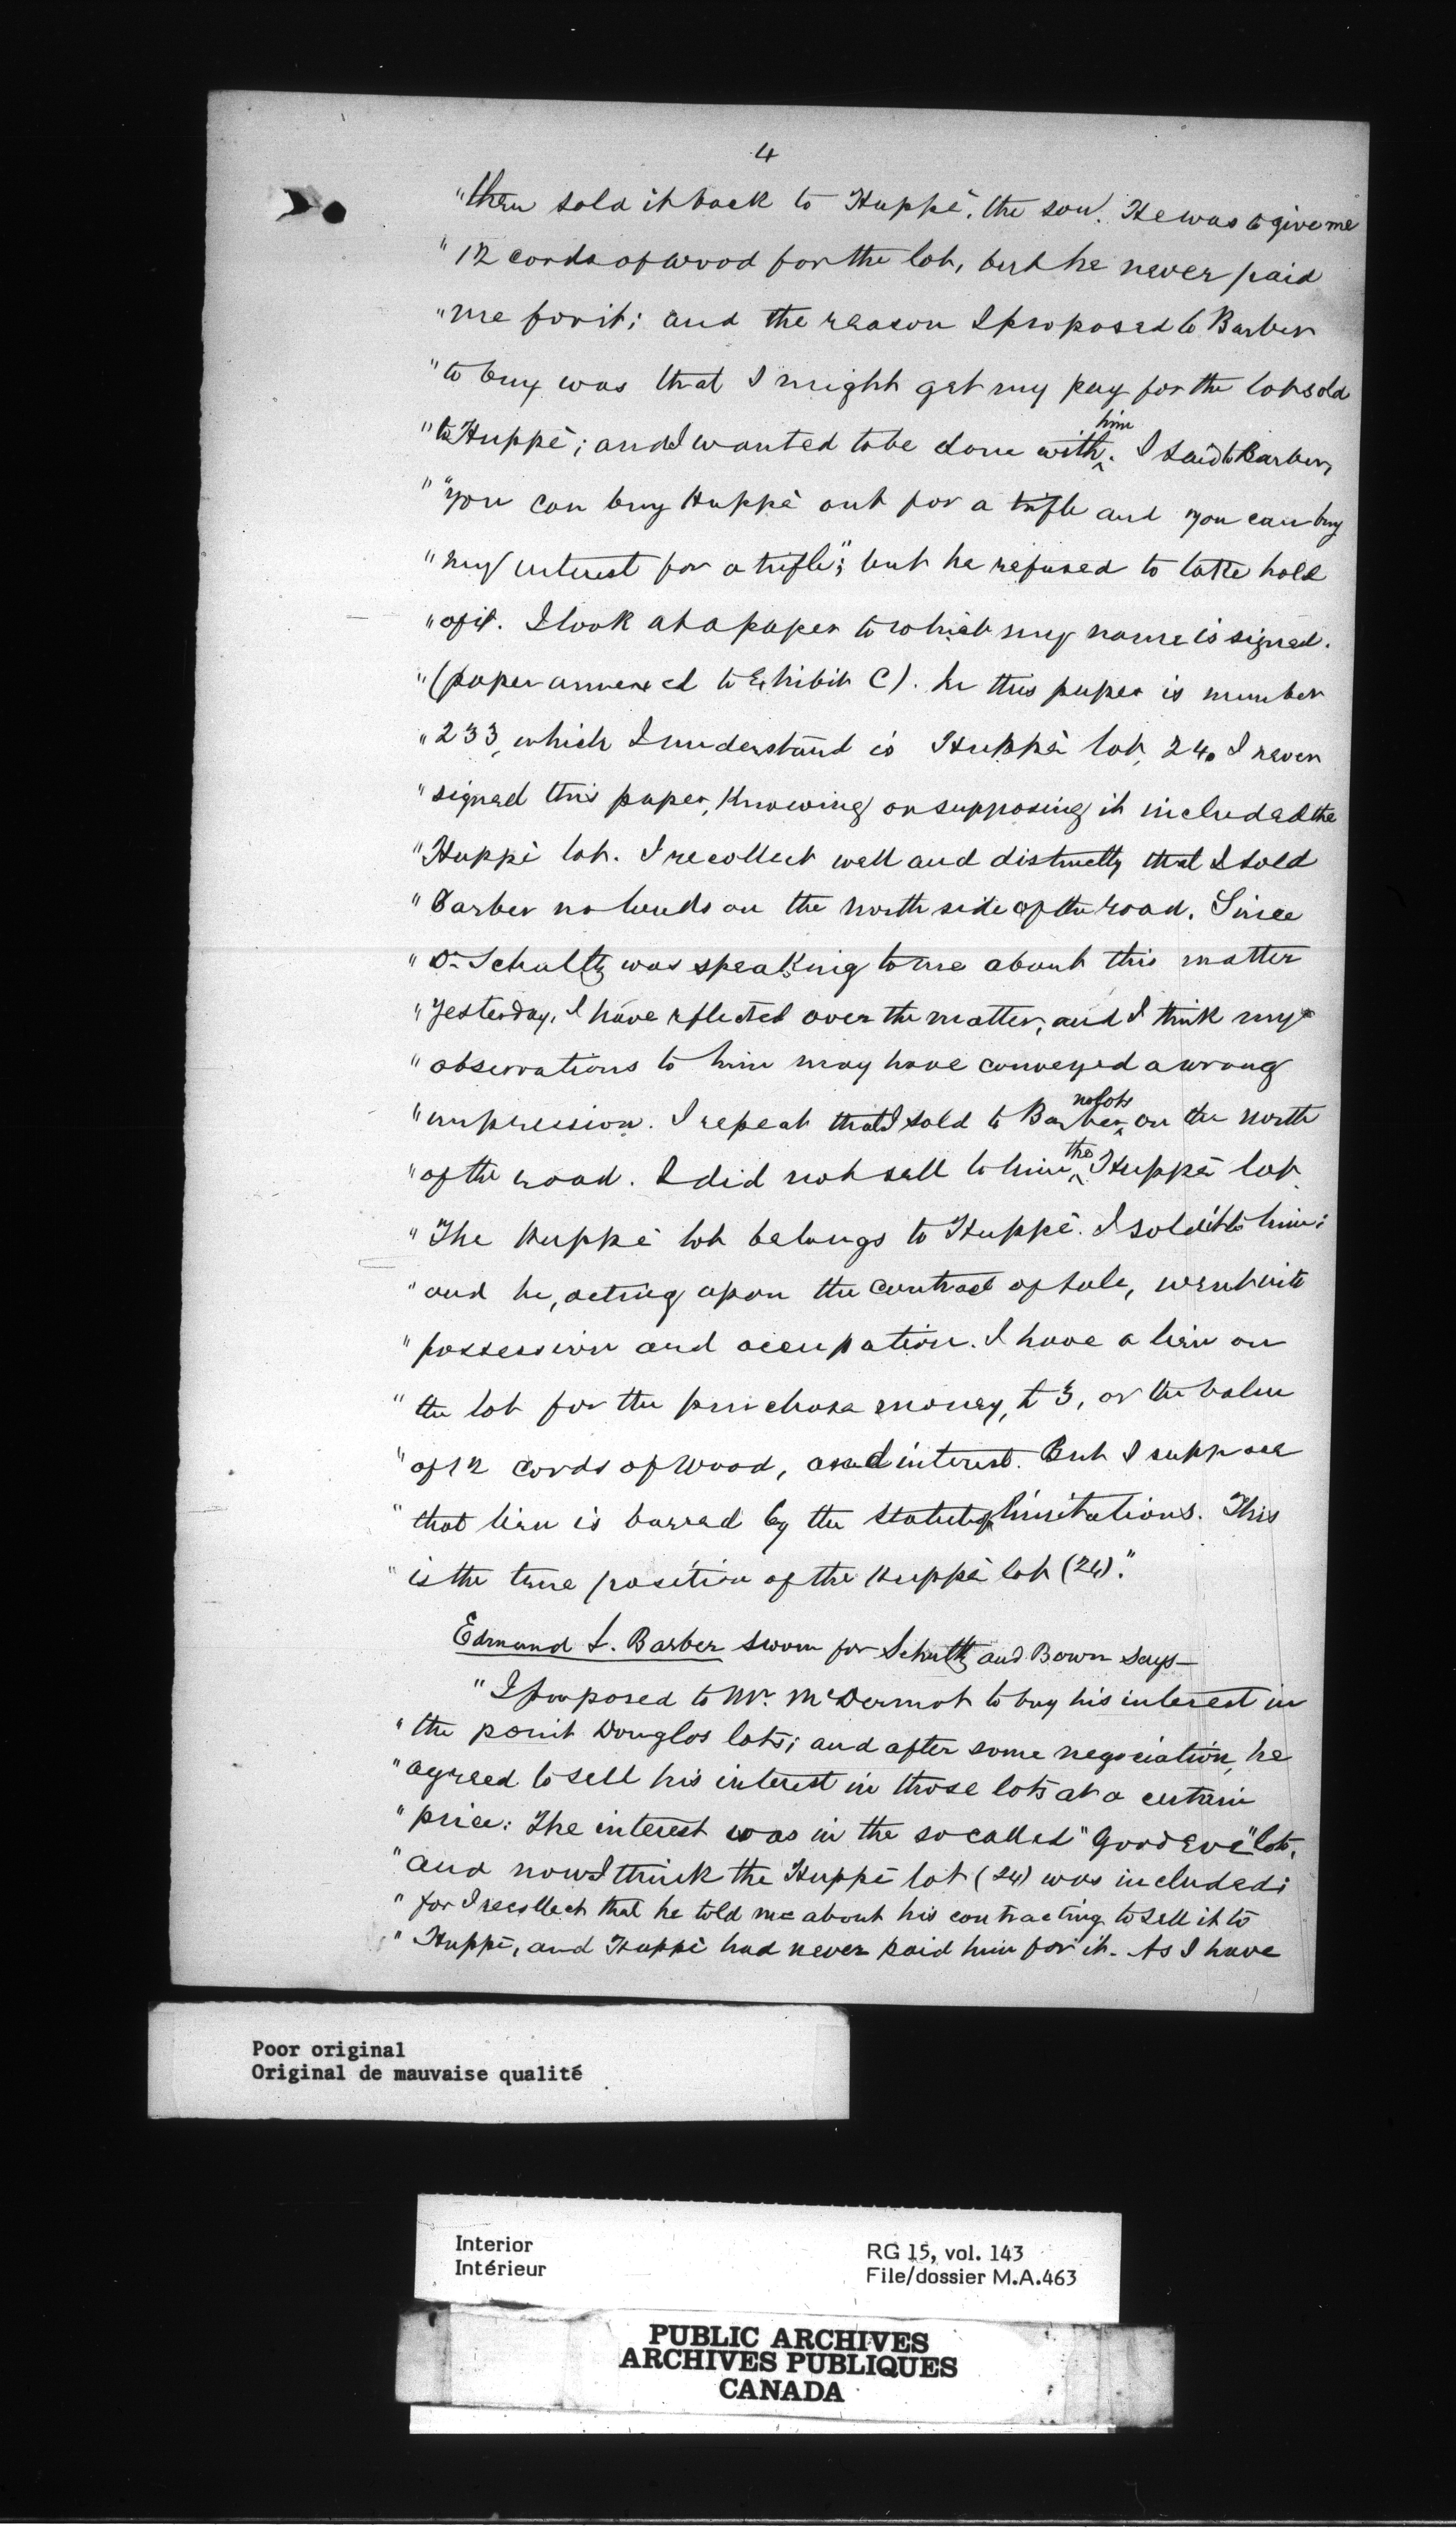 4
"then sold it back to Huppé, the son. He was to give me
" 12 cords of wood for the lot, but he never paid
" me for it; and the reason I proposed to Barber
" to buy was that I might get my pay for the lot sold
" to Huppé; and I wanted to be done with him. I said to Barber,
" "you can buy Huppé out for a trifle and you can buy
" my interest for a trifle"; but he refused to take hold
" of it. I look at a paper to which my name is signed.
" (paper annexed to Exhibit C). In this paper is number
" 233, which I understand is Huppé lot, 24. I never
" signed this paper, knowing or supposing it included the
" Huppé lot. I recollect well and distinctly that I sold
" Barber no lands on the north side of the road. Since
" Dr. Schultz was speaking to me about this matter
" yesterday, I have reflected over the matter, and I think my
" observations to him may have conveyed a wrong
" impression. I repeat that I sold to Barber no lots on the north
" of the road. I did not sell to him the Huppé lot.
" The Huppé lot belongs to Huppé. I sold it to him;
" and he, acting upon the contract of sale, went into
" possession and occupation. I have a lien on
" the lot for the purchase money, £3, or the value
" of 12 cords of wood, and interest. But I suppose
" that lien is barred by the statute of limitations. This
" is the true position of the Huppé lot (24)."
Edmund L. Barber sworn for Schultz and Bown says—
" I proposed to Mr. McDermot to buy his interest in
" the point Douglas lots; and after some negociation, he
" agreed to sell his interest in those lots at a certain
" price: The interest was in the so called "Good Eve" lots,
" and now I think the Huppé lot (24) was included;
" for I recollect that he told me about his contracting to sell it to
" Huppé, and Huppé had never paid him for it. As I have
Poor original
Original de mauvaise qualité
Interior
Intérieur
RG 15, vol. 143
File/dossier M.A.463
PUBLIC ARCHIVES
ARCHIVES PUBLIQUES
CANADA